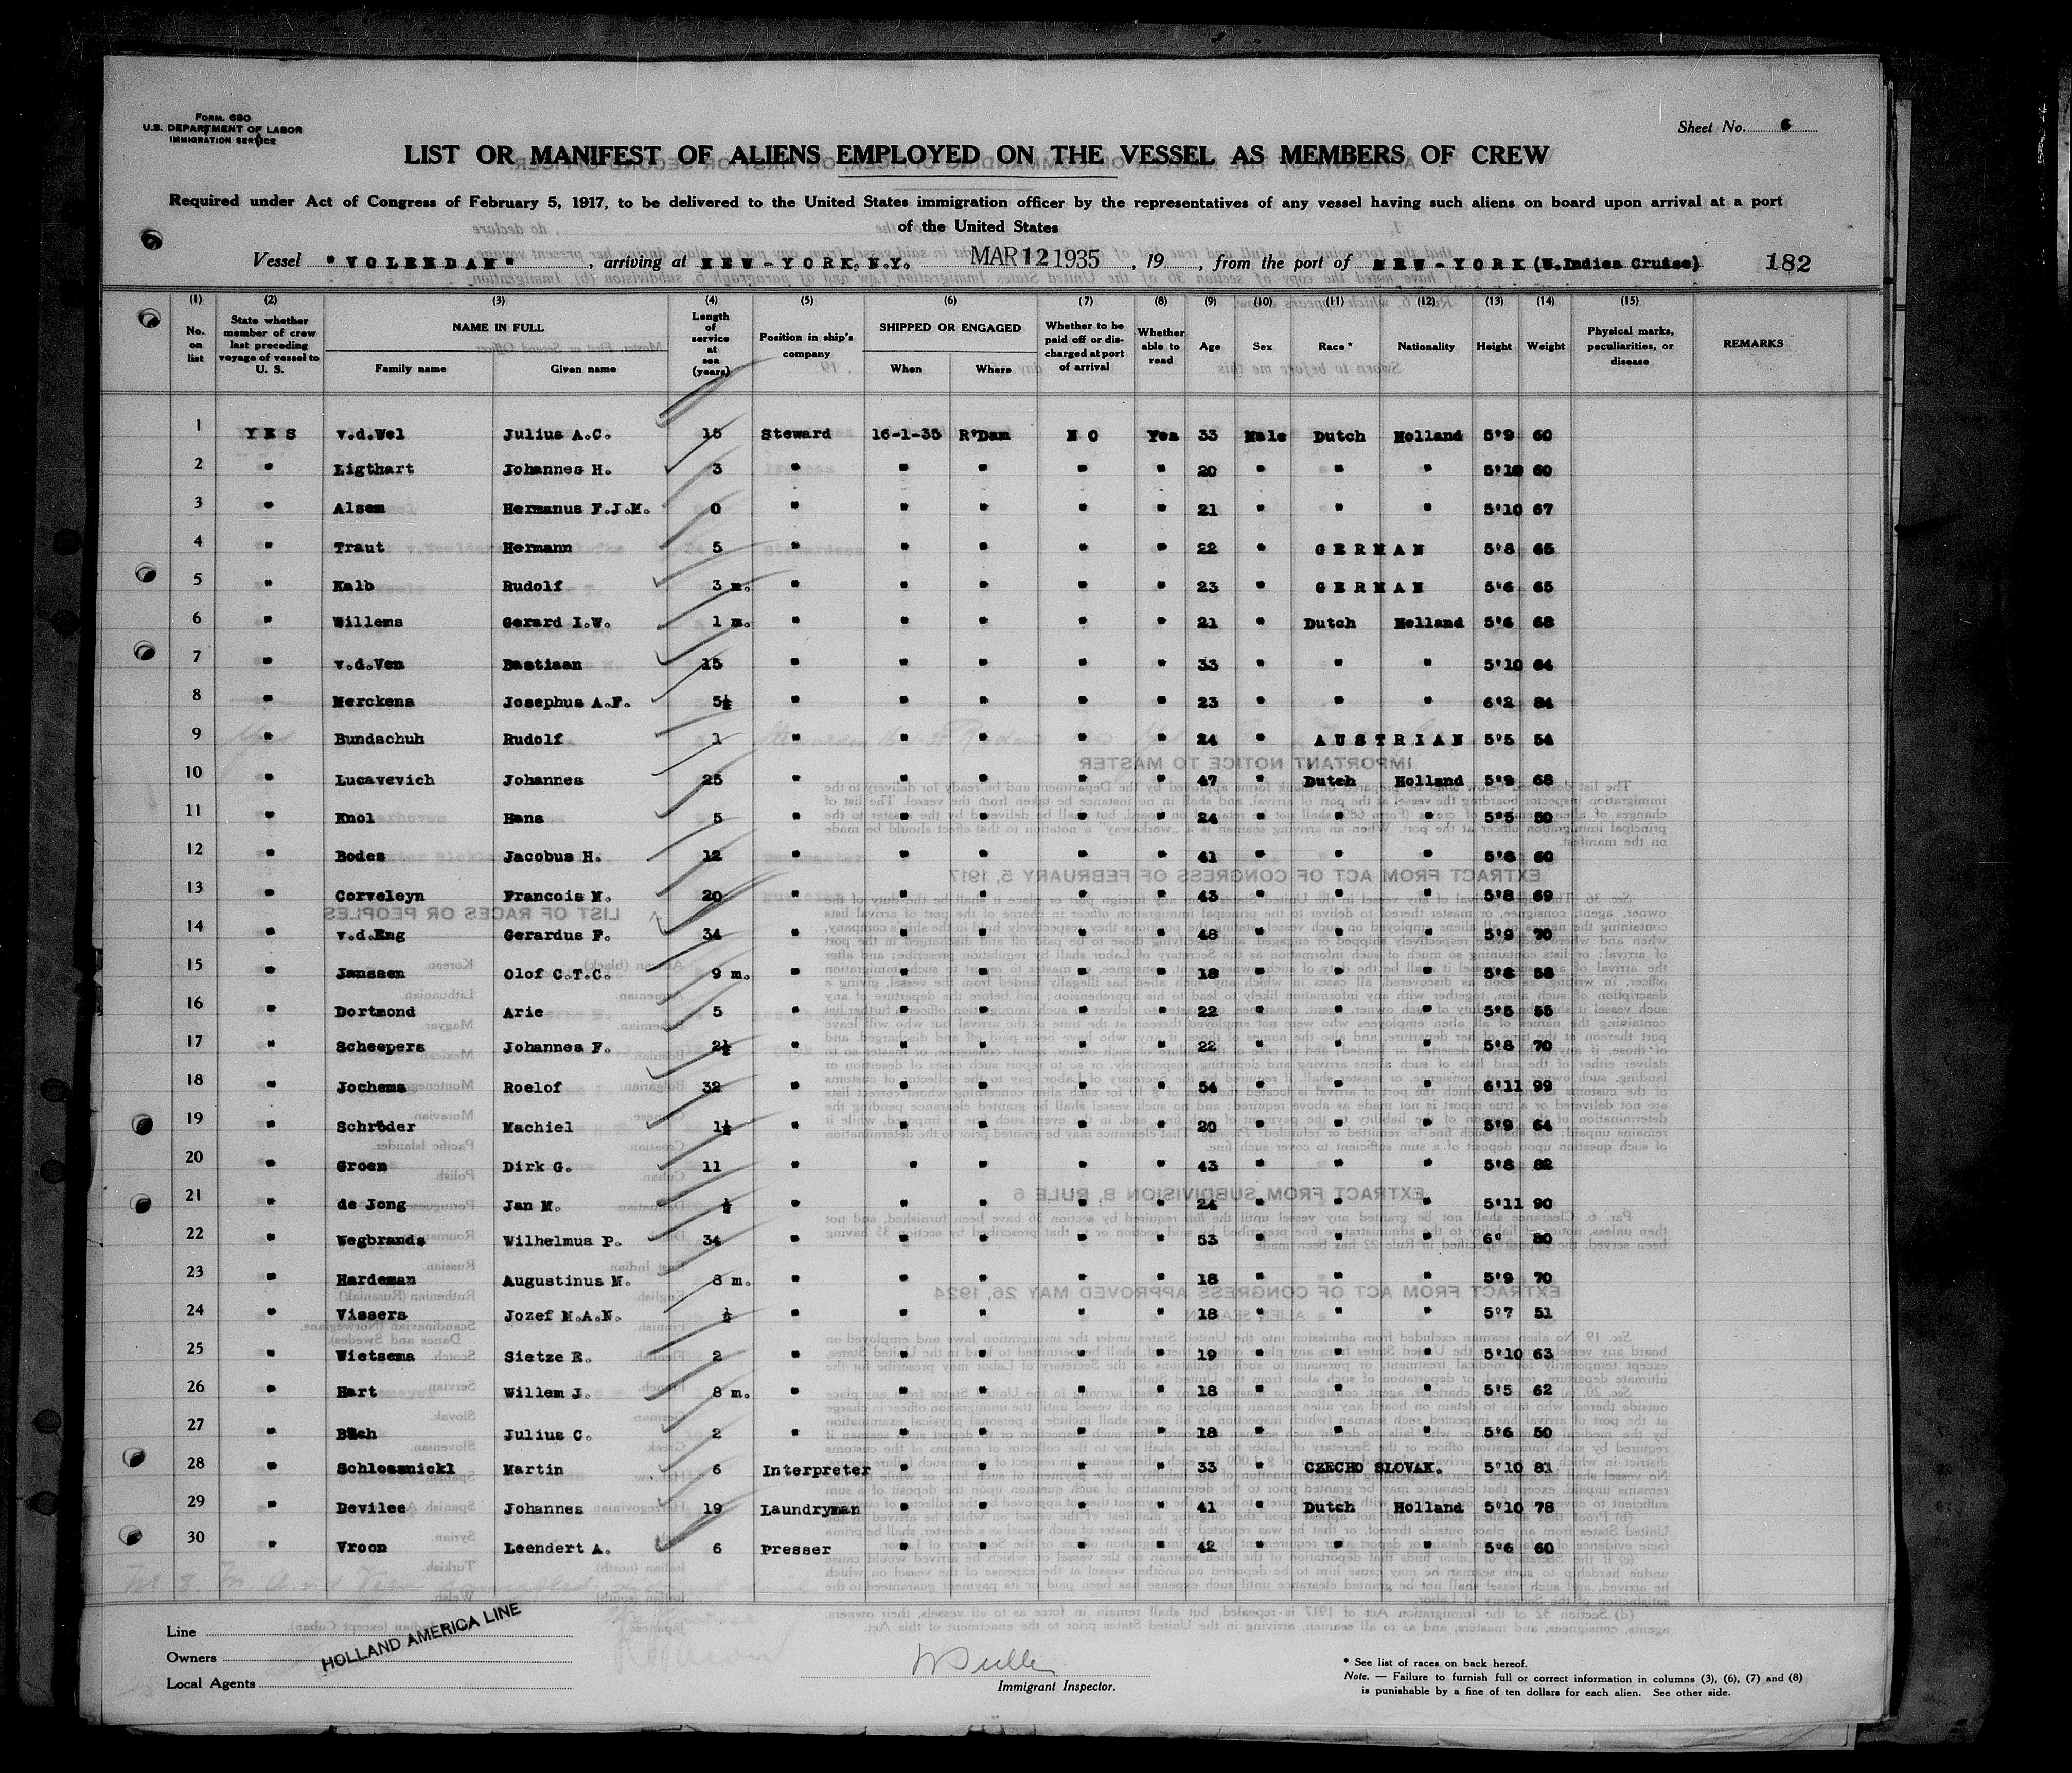 FORM. 680
U.S. DEPARTMENT OF LABOR
IMMIGRATION SERVICE
Sheet No. 6
LIST OR MANIFEST OF ALIENS EMPLOYED ON THE VESSEL AS MEMBERS OF CREW
Required under Act of Congress of February 5, 1917, to be delivered to the United States immigration officer by the representatives of any vessel having such aliens on board upon arrival at a port
of the United States
Vessel "VOLENDAM", arriving at NEW-YORK.N.Y. MAR 12 1935, 19, from the port of NEW-YORK (W.Indies Cruise) 182
(1) (2) (3) (4) (5) (6) (7) (8) (9) (10) (11) (12) (13) (14) (15)
No. on list State whether member of crew last preceding voyage of vessel to U. S. NAME IN FULL Family name Given name Length of service at sea (years) Position in ship's company SHIPPED OR ENGAGED When Where Whether to be paid off or discharged at port of arrival Whether able to read Age Sex Race * Nationality Height Weight Physical marks, peculiarities, or disease REMARKS
1 YES v.d.Wel Julius A.C. 15 Steward 16-1-35 R'Dam NO Yes 33 Male Dutch Holland 5'9 60
2 " Ligthart Johannes H. 3 " " " " " 20 " " " 5'10 60
3 " Alsem Hermanus F.J.M. 0 " " " " " 21 " " " 5'10 67
4 " Traut Hermann 5 " " " " " 22 " GERMAN 5'8 65
5 " Kalb Rudolf 3 m. " " " " " 23 " GERMAN 5'6 65
6 " Willems Gerard I.W. 1 m. " " " " " 21 " Dutch Holland 5'6 68
7 " v.d.Ven Bastiaan 15 " " " " " 33 " " " 5'10 64
8 " Merckens Josephus A.F. 5½ " " " " " 23 " " " 6'2 84
9 " Bundschuh Rudolf 1 " " " " " 24 " AUSTRIAN 5'5 54
10 " Lucavevich Johannes 25 " " " " " 47 " Dutch Holland 5'9 68
11 " Knol Hans 5 " " " " " 24 " " " 5'5 50
12 " Bodes Jacobus H. 12 " " " " " 41 " " " 5'8 60
13 " Corveleyn Francois M. 20 " " " " " 43 " " " 5'8 69
14 " v.d.Eng Gerardus F. 34 " " " " " 48 " " " 5'9 70
15 " Janssen Olof C.T.C. 9 m. " " " " " 18 " " " 5'8 58
16 " Dortmond Arie 5 " " " " " 22 " " " 5'5 55
17 " Scheepers Johannes F. 2½ " " " " " 22 " " " 5'8 70
18 " Jochems Roelof 32 " " " " " 54 " " " 6'11 99
19 " Schröder Machiel 1½ " " " " " 20 " " " 5'9 64
20 " Groen Dirk G. 11 " " " " " 43 " " " 5'8 82
21 " de Jong Jan M. ½ " " " " " 24 " " " 5'11 90
22 " Wegbrands Wilhelmus P. 34 " " " " " 53 " " " 6' 80
23 " Hardeman Augustinus M. 8 m. " " " " " 18 " " " 5'9 70
24 " Vissers Jozef M.A.N. ½ " " " " " 18 " " " 5'7 51
25 " Wietsema Sietze E. 2 " " " " " 19 " " " 5'10 63
26 " Hart Willem J. 8 m. " " " " " 18 " " " 5'5 62
27 " Julius C. 2 " " " " " 18 " " " 5'6 50
28 " Schlossnickl Martin 6 Interpreter " " " " 33 " CZECHO SLOVAK. 5'10 81
29 " Devilee Johannes 19 Laundryman " " " " 41 " Dutch Holland 5'10 78
30 " Vroon Leendert A. 6 Presser " " " " 42 " " " 5'6 60
Line
Owners HOLLAND AMERICA LINE
Local Agents
Immigrant Inspector.
* See list of races on back hereof.
Note. — Failure to furnish full or correct information in columns (3), (6), (7) and (8)
is punishable by a fine of ten dollars for each alien. See other side.